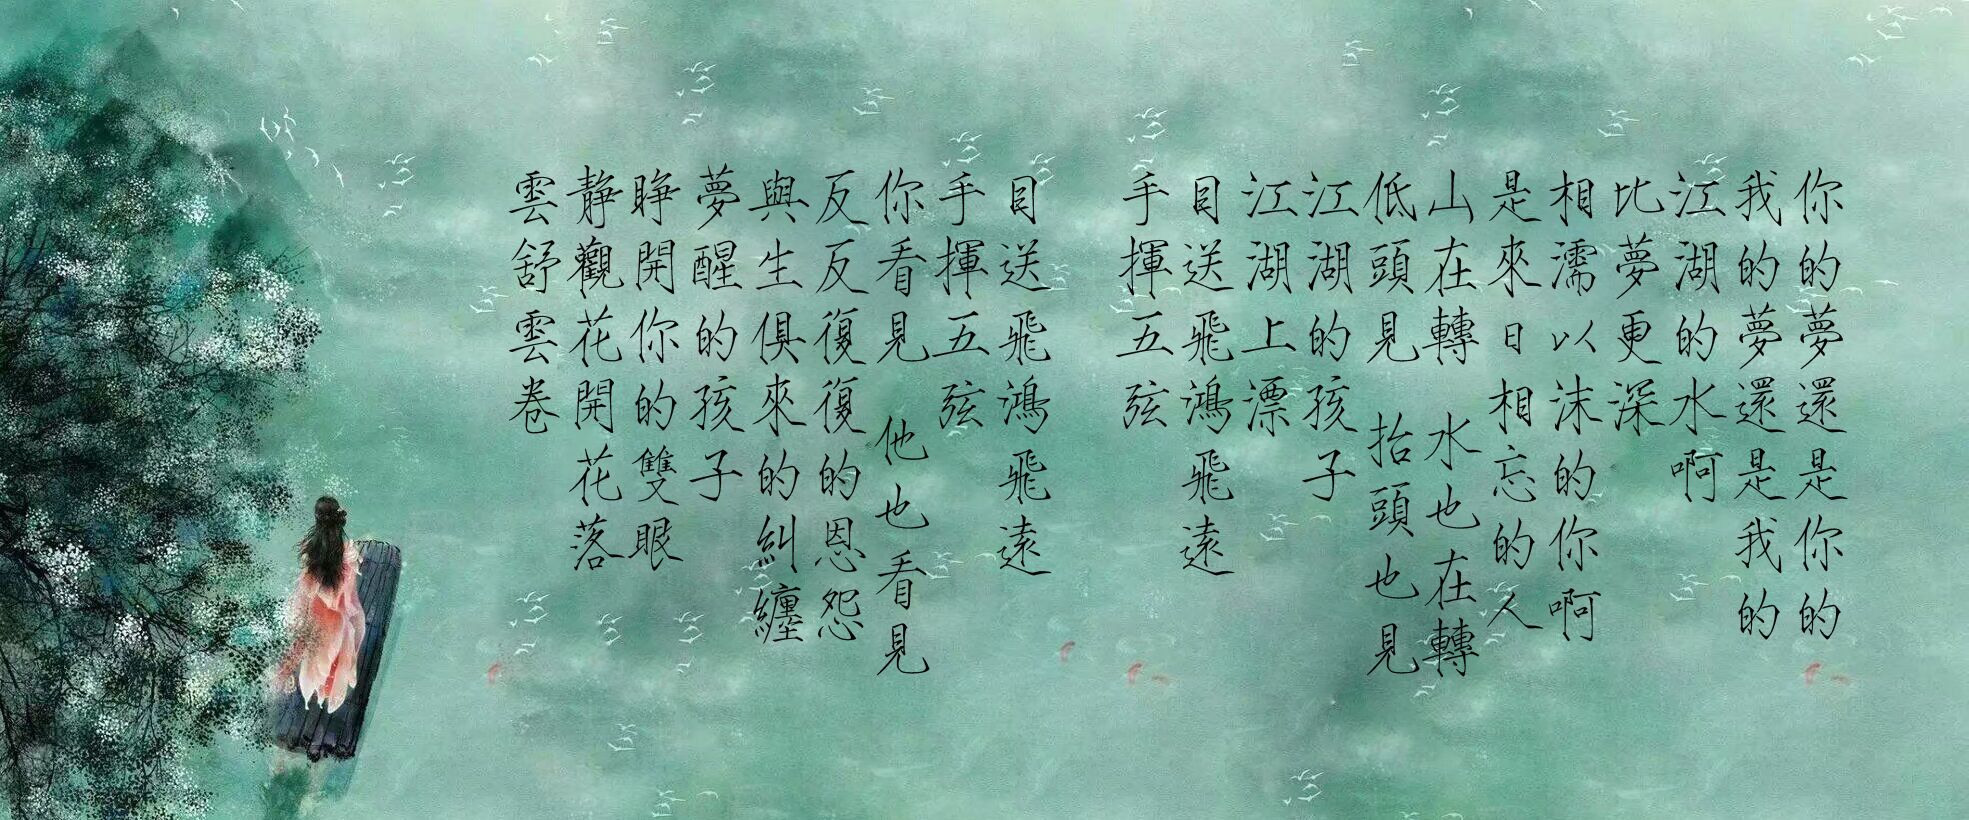 你的夢還是你的
我的夢還是我的
江湖的水啊
比夢更深
相濡以沫的你啊
是來日相忘的人
山在轉 水也在轉
低頭見 抬頭也見
江湖的孩子
江湖上漂
目送飛鴻飛遠
手揮五弦
目送飛鴻飛遠
手揮五弦
你看見 他也看見
反反復復的恩怨
與生俱來的糾纏
夢醒的孩子
睜開你的雙眼
靜觀花開花落
雲舒雲卷